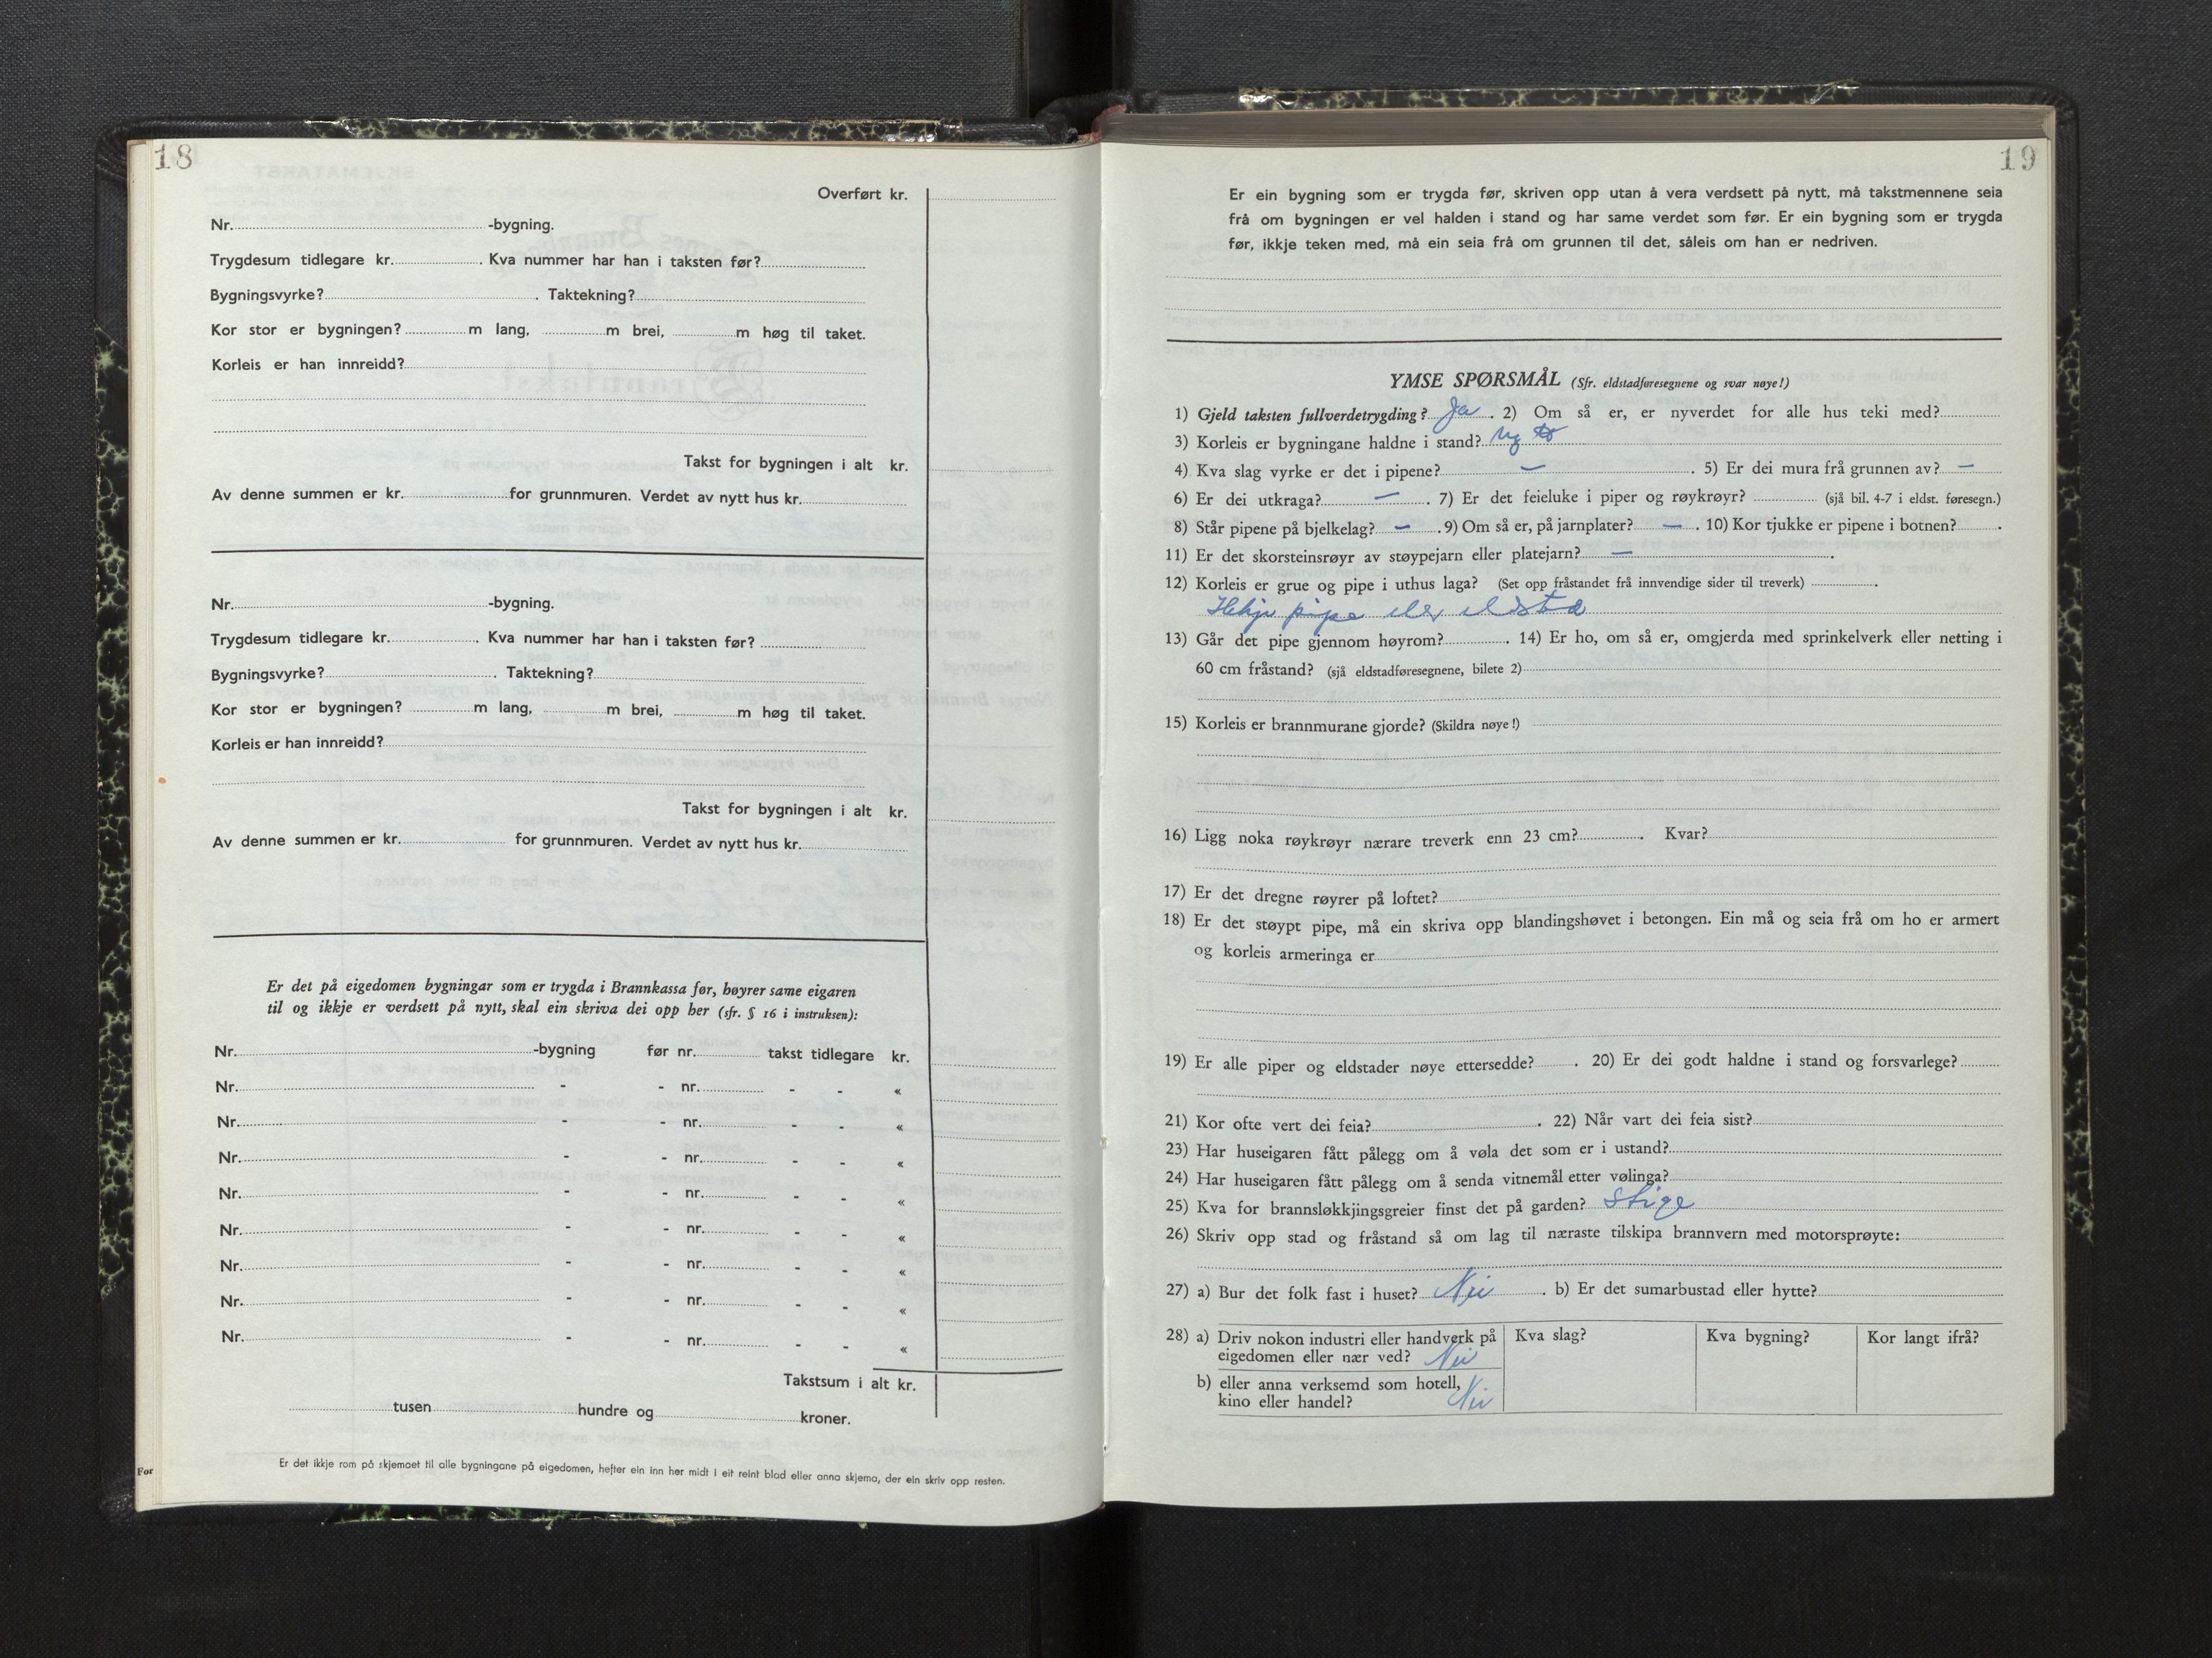 18
Overført kr.
Nr. -bygning.
Trygdesum tidlegare kr. . Kva nummer har han i taksten før?
Bygningsvyrke? . Taktekning?
Kor stor er bygningen? m lang, m brei, m høg til taket.
Korleis er han innreidd?
Takst for bygningen i alt kr.
Av denne summen er kr. for grunnmuren. Verdet av nytt hus kr.
Nr. -bygning.
Trygdesum tidlegare kr. . Kva nummer har han i taksten før?
Bygningsvyrke? . Taktekning?
Kor stor er bygningen? m lang, m brei, m høg til taket.
Korleis er han innreidd?
Takst for bygningen i alt kr.
Av denne summen er kr. for grunnmuren. Verdet av nytt hus kr.
Er det på eigedomen bygningar som er trygda i Brannkassa før, høyrer same eigaren
til og ikkje er verdsett på nytt, skal ein skriva dei opp her (sfr. § 16 i instruksen):
Nr. -bygning før nr. takst tidlegare kr.
Nr. - - nr. - - «
Nr. - - nr. - - «
Nr. - - nr. - - «
Nr. - - nr. - - «
Nr. - - nr. - - «
Nr. - - nr. - - «
Nr. - - nr. - - «
Nr. - - nr. - - «
Takstsum i alt kr.
tusen hundre og kroner.
Er det ikkje rom på skjemaet til alle bygningane på eigedomen, hefter ein inn her midt i eit reint blad eller anna skjema, der ein skriv opp resten.
For
19
Er ein bygning som er trygda før, skriven opp utan å vera verdsett på nytt, må takstmennene seia
frå om bygningen er vel halden i stand og har same verdet som før. Er ein bygning som er trygda
før, ikkje teken med, må ein seia frå om grunnen til det, såleis om han er nedriven.
YMSE SPØRSMÅL (Sfr. eldstadføresegnene og svar nøye!)
1) Gjeld taksten fullverdetrygding? Ja . 2) Om så er, er nyverdet for alle hus teki med?
3) Korleis er bygningane haldne i stand? Ny
4) Kva slag vyrke er det i pipene? — . 5) Er dei mura frå grunnen av? —
6) Er dei utkraga? — . 7) Er det feieluke i piper og røykrøyr? (sjå bil. 4-7 i eldst. føresegn.)
8) Står pipene på bjelkelag? — . 9) Om så er, på jarnplater? — . 10) Kor tjukke er pipene i botnen? .
11) Er det skorsteinsrøyr av støypejarn eller platejarn? — .
12) Korleis er grue og pipe i uthus laga? (Set opp fråstandet frå innvendige sider til treverk) .
Ikkje pipe eller eldsted
13) Går det pipe gjennom høyrom? . 14) Er ho, om så er, omgjerda med sprinkelverk eller netting i
60 cm fråstand? (sjå eldstadføresegnene, bilete 2)
15) Korleis er brannmurane gjorde? (Skildra nøye!)
16) Ligg noka røykrøyr nærare treverk enn 23 cm? . Kvar?
17) Er det dregne røyrer på loftet?
18) Er det støypt pipe, må ein skriva opp blandingshøvet i betongen. Ein må og seia frå om ho er armert
og korleis armeringa er
19) Er alle piper og eldstader nøye ettersedde? . 20) Er dei godt haldne i stand og forsvarlege?
21) Kor ofte vert dei feia? . 22) Når vart dei feia sist?
23) Har huseigaren fått pålegg om å vøla det som er i ustand?
24) Har huseigaren fått pålegg om å senda vitnemål etter vølinga?
25) Kva for brannsløkkjingsgreier finst det på garden? Stige
26) Skriv opp stad og fråstand så om lag til næraste tilskipa brannvern med motorsprøyte:
27) a) Bur det folk fast i huset? Nei . b) Er det sumarbustad eller hytte?
28) a) Driv nokon industri eller handverk på Kva slag? Kva bygning? Kor langt ifrå?
eigedomen eller nær ved? Nei
b) eller anna verksemd som hotell,
kino eller handel? Nei